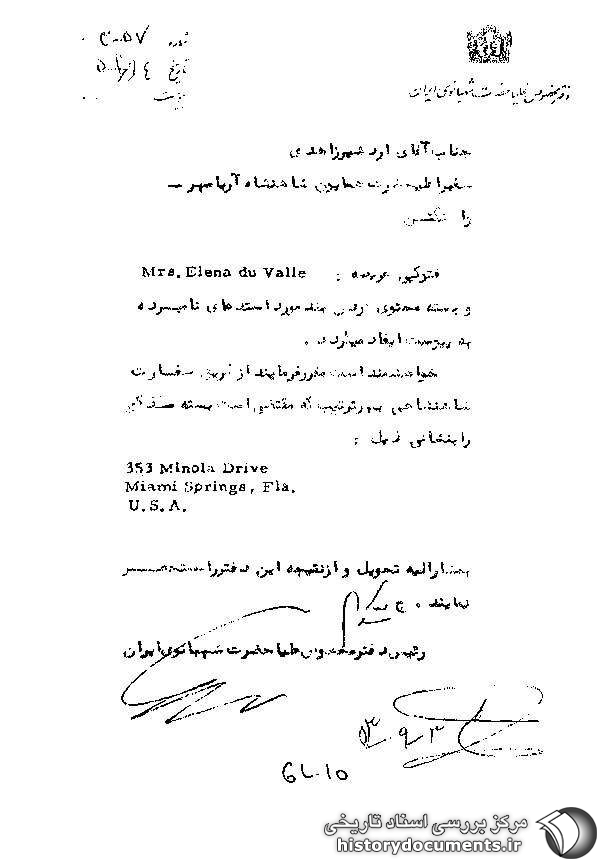 دفتر مخصوص علیاحضرت شهبانوی ایران
جناب آقای اردشیر زاهدی
سفیر اعلیحضرت همایون شاهنشاه آریامهر ـ
واشنگتن
فتوکپی عریضه : Mrs. Elena du Valle
و بسته محتوی درخواستهای نامبرده
به پیوست ایفاد میگردد .
خواهشمند است مقرر فرمایند از طریق سفارت
شاهنشاهی بهر ترتیب که مقتضی است بسته مذکور
را بنشانی ذیل :
353 Minola Drive
Miami Springs, Fla.
U.S.A.
بمشارالیه تحویل و از نتیجه این دفتر را مستحضر
نمایند .
رئیس دفتر مخصوص علیاحضرت شهبانوی ایران
مرکز بررسی اسناد تاریخی
historydocuments.ir